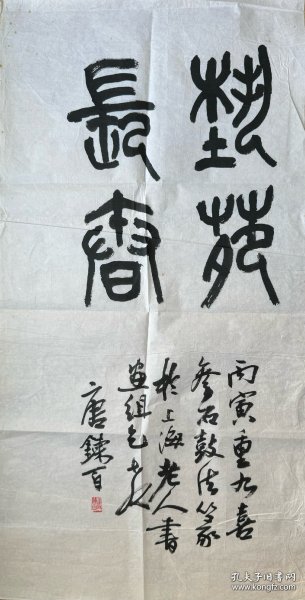 藝苑
長春
丙寅重九喜
參石鼓法篆
於上海老人書
畫組
唐鍊百
孔夫子旧书网